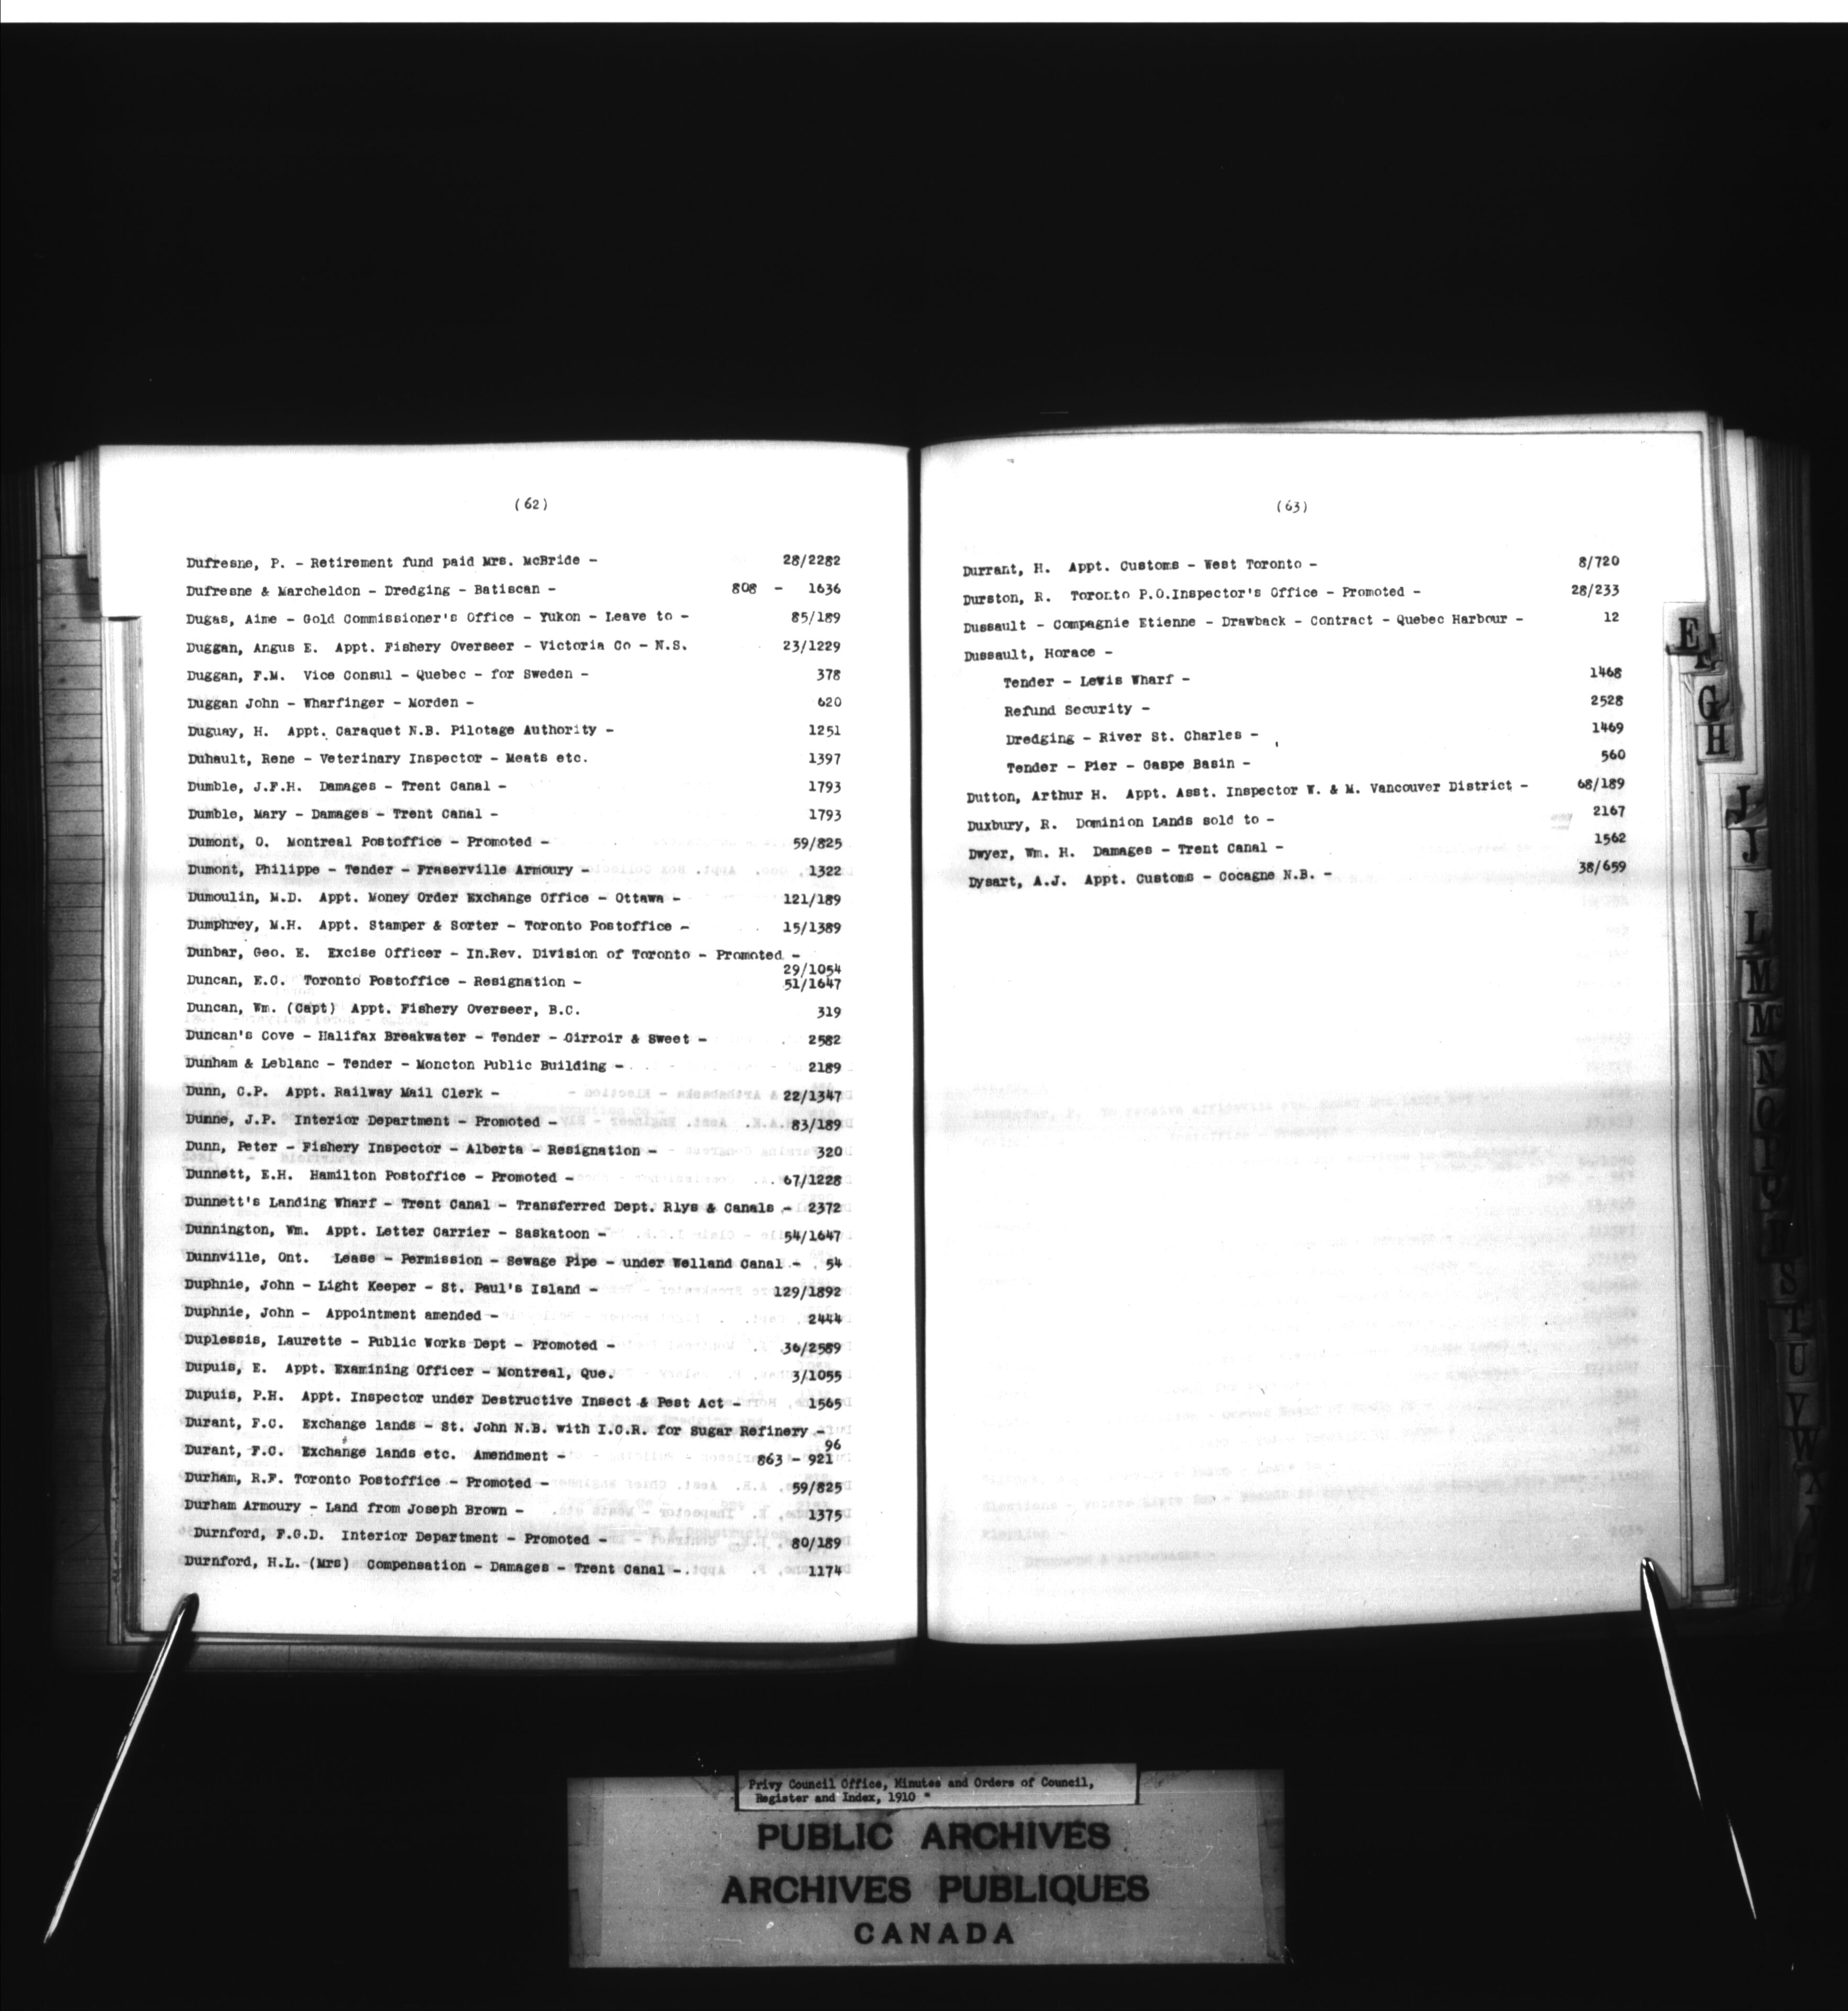 (62)
Dufresne, P. - Retirement fund paid Mrs. McBride - 28/2282
Dufresne & Marcheldon - Dredging - Batiscan - 808 - 1636
Dugas, Aime - Gold Commissioner's Office - Yukon - Leave to - 85/189
Duggan, Angus E. Appt. Fishery Overseer - Victoria Co - N.S. 23/1229
Duggan, F.M. Vice Consul - Quebec - for Sweden - 378
Duggan John - Wharfinger - Morden - 620
Duguay, H. Appt. Caraquet N.B. Pilotage Authority - 1251
Duhault, Rene - Veterinary Inspector - Meats etc. 1397
Dumble, J.F.H. Damages - Trent Canal - 1793
Dumble, Mary - Damages - Trent Canal - 1793
Dumont, O. Montreal Postoffice - Promoted - 59/825
Dumont, Philippe - Tender - Fraserville Armoury - 1322
Dumoulin, M.D. Appt. Money Order Exchange Office - Ottawa - 121/189
Dumphrey, M.H. Appt. Stamper & Sorter - Toronto Postoffice - 15/1389
Dunbar, Geo. E. Excise Officer - In.Rev. Division of Toronto - Promoted -
29/1054
Duncan, E.C. Toronto Postoffice - Resignation - 51/1647
Duncan, Wm. (Capt) Appt. Fishery Overseer, B.C. 319
Duncan's Cove - Halifax Breakwater - Tender - Girroir & Sweet - 2582
Dunham & Leblanc - Tender - Moncton Public Building - 2189
Dunn, C.P. Appt. Railway Mail Clerk - 22/1347
Dunne, J.P. Interior Department - Promoted - 83/189
Dunn, Peter - Fishery Inspector - Alberta - Resignation - 320
Dunnett, E.H. Hamilton Postoffice - Promoted - 67/1228
Dunnett's Landing Wharf - Trent Canal - Transferred Dept. Rlys & Canals - 2372
Dunnington, Wm. Appt. Letter Carrier - Saskatoon - 54/1647
Dunnville, Ont. Lease - Permission - Sewage Pipe - under Welland Canal - 54
Duphnie, John - Light Keeper - St. Paul's Island - 129/1892
Duphnie, John - Appointment amended - 2444
Duplessis, Laurette - Public Works Dept - Promoted - 36/2589
Dupuis, E. Appt. Examining Officer - Montreal, Que. 3/1055
Dupuis, P.H. Appt. Inspector under Destructive Insect & Pest Act - 1565
Durant, F.C. Exchange lands - St. John N.B. with I.C.R. for Sugar Refinery -
96
Durant, F.C. Exchange lands etc. Amendment - 863 - 921
Durham, R.F. Toronto Postoffice - Promoted - 59/825
Durham Armoury - Land from Joseph Brown - 1375
Durnford, F.G.D. Interior Department - Promoted - 80/189
Durnford, H.L. (Mrs) Compensation - Damages - Trent Canal - 1174
(63)
Durrant, H. Appt. Customs - West Toronto - 8/720
Durston, R. Toronto P.O.Inspector's Office - Promoted - 28/233
Dussault - Compagnie Etienne - Drawback - Contract - Quebec Harbour - 12
Dussault, Horace -
Tender - Lewis Wharf - 1468
Refund Security - 2528
Dredging - River St. Charles - 1469
Tender - Pier - Gaspe Basin - 560
Dutton, Arthur H. Appt. Asst. Inspector W. & M. Vancouver District - 68/189
Duxbury, R. Dominion Lands sold to - 2167
Dwyer, Wm. H. Damages - Trent Canal - 1562
Dysart, A.J. Appt. Customs - Cocagne N.B. - 38/659
E
F
G
H
J
J
L
M
Mc
N
O
P
S
T
U
V
W
X
Privy Council Office, Minutes and Orders of Council,
Register and Index, 1910
PUBLIC ARCHIVES
ARCHIVES PUBLIQUES
CANADA